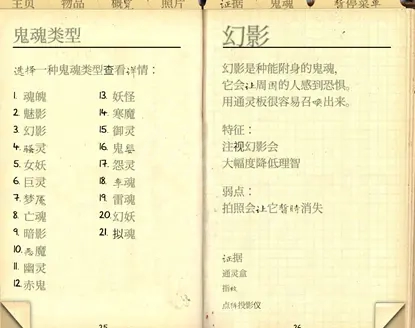 主页 物品 概览 照片
鬼魂类型
选择一种鬼魂类型查看详情：
1. 魂魄
2. 魅影
3. 幻影
4. 骚灵
5. 女妖
6. 巨灵
7. 梦魇
8. 亡魂
9. 暗影
10. 恶魔
11. 幽灵
12. 赤鬼
13. 妖怪
14. 寒魔
15. 御灵
16. 鬼婴
17. 怨灵
18. 孪魂
19. 雷魂
20. 幻妖
21. 拟魂
25
证据 鬼魂 暂停菜单
幻影
幻影是种能附身的鬼魂，
它会让周围的人感到恐惧。
用通灵板很容易召唤出来。
特征：
注视幻影会
大幅度降低理智
弱点：
拍照会让它暂时消失
证据
通灵盒
指纹
点阵投影仪
26